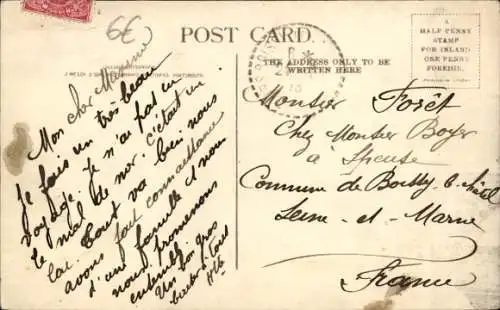 6€
POST CARD.
A
HALF PENNY
STAMP
FOR INLAND
ONE PENNY
FOREIGN.
THE ADDRESS ONLY TO BE
WRITTEN HERE
Mon cher Maxime
Je fais un très beau
voyage. Je n'ai pas eu
le mal de mer. c'était un
lac. Tout va bien nous
avons fait connaissance
d'une famille et nous
nous promenons
ensemble.
Un bon gros
à tous
Monsieur Forêt
Chez Monsieur Boyer
à
Commune de Boissy le Châtel
Seine-et-Marne
France